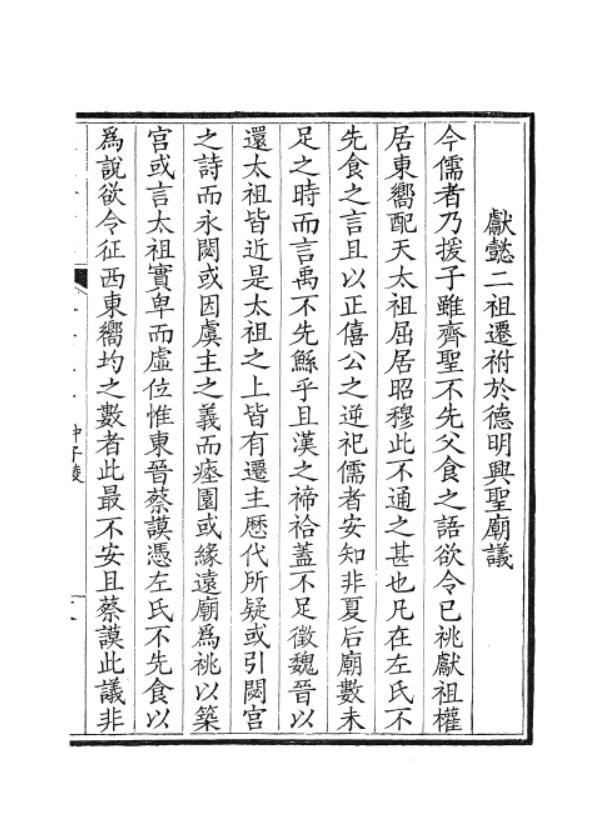 獻懿二祖遷祔於德明興聖廟議
今儒者乃援子雖齊聖不先父食之語欲令已祧獻祖權
居東嚮配天太祖屈居昭穆此不通之甚也凡在左氏不
先食之言且以正僖公之逆祀儒者安知非夏后廟數未
足之時而言禹不先鯀乎且漢之禘祫蓋不足徵魏晉以
還太祖皆近是太祖之上皆有遷主歴代所疑或引閟宮
之詩而永閟或因虞主之義而瘞園或緣遠廟為祧以築
宮或言太祖實卑而虛位惟東晉蔡謨憑左氏不先食以
為說欲令征西東嚮均之數者此最不安且蔡謨此議非
仲子陵